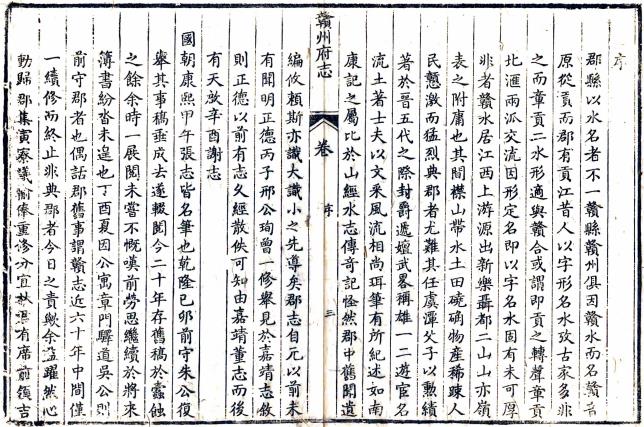 序
郡縣以水名者不一贛縣贛州俱因贛水而名贛
原從貢而郡有貢江昔人以字形名水攷古家多非
之而章貢二水形適與贛合或謂即貢之轉聲章貢
北滙兩派交流因形定名即以字名水固有未可厚
非者贛水居江西上游源出新樂聶都二山山亦嶺
表之附庸也其間襟山帶水土田磽确物產稀踈人
民戇激而猛烈典郡者尤難其任虞潭父子以勲績
著於晉五代之際封爵遞嬗武畧稱雄一二遊宦名
流土著士夫以文采風流相尚珥筆有所紀述如南
康記之屬比於山經水志傳奇記怪然郡中舊聞遺
贛州府志
卷
序
三
編攸賴斯亦識大識小之先導矣郡志自元以前未
有聞明正德丙子邢公珣曾一修舉見於嘉靖志敘
則正德以前有志久經散佚可知由嘉靖董志而後
有天啟辛酉謝志
國朝康熙甲午張志皆名筆也乾隆己卯前守朱公復
舉其事稿垂成去遂輟閱今二十年存舊稿於蠹蝕
之餘余時一展閱未嘗不慨嘆前勞思繼續於將來
簿書紛沓未遑也丁酉夏因公寓章門驛道吳公則
前守郡者也偶話郡舊事謂贛志近六十年中間僅
一續修而終止非典郡者今日之責歟余 躍然心
動歸郡集寅寮議 俸重 分宜林 有席前領吉